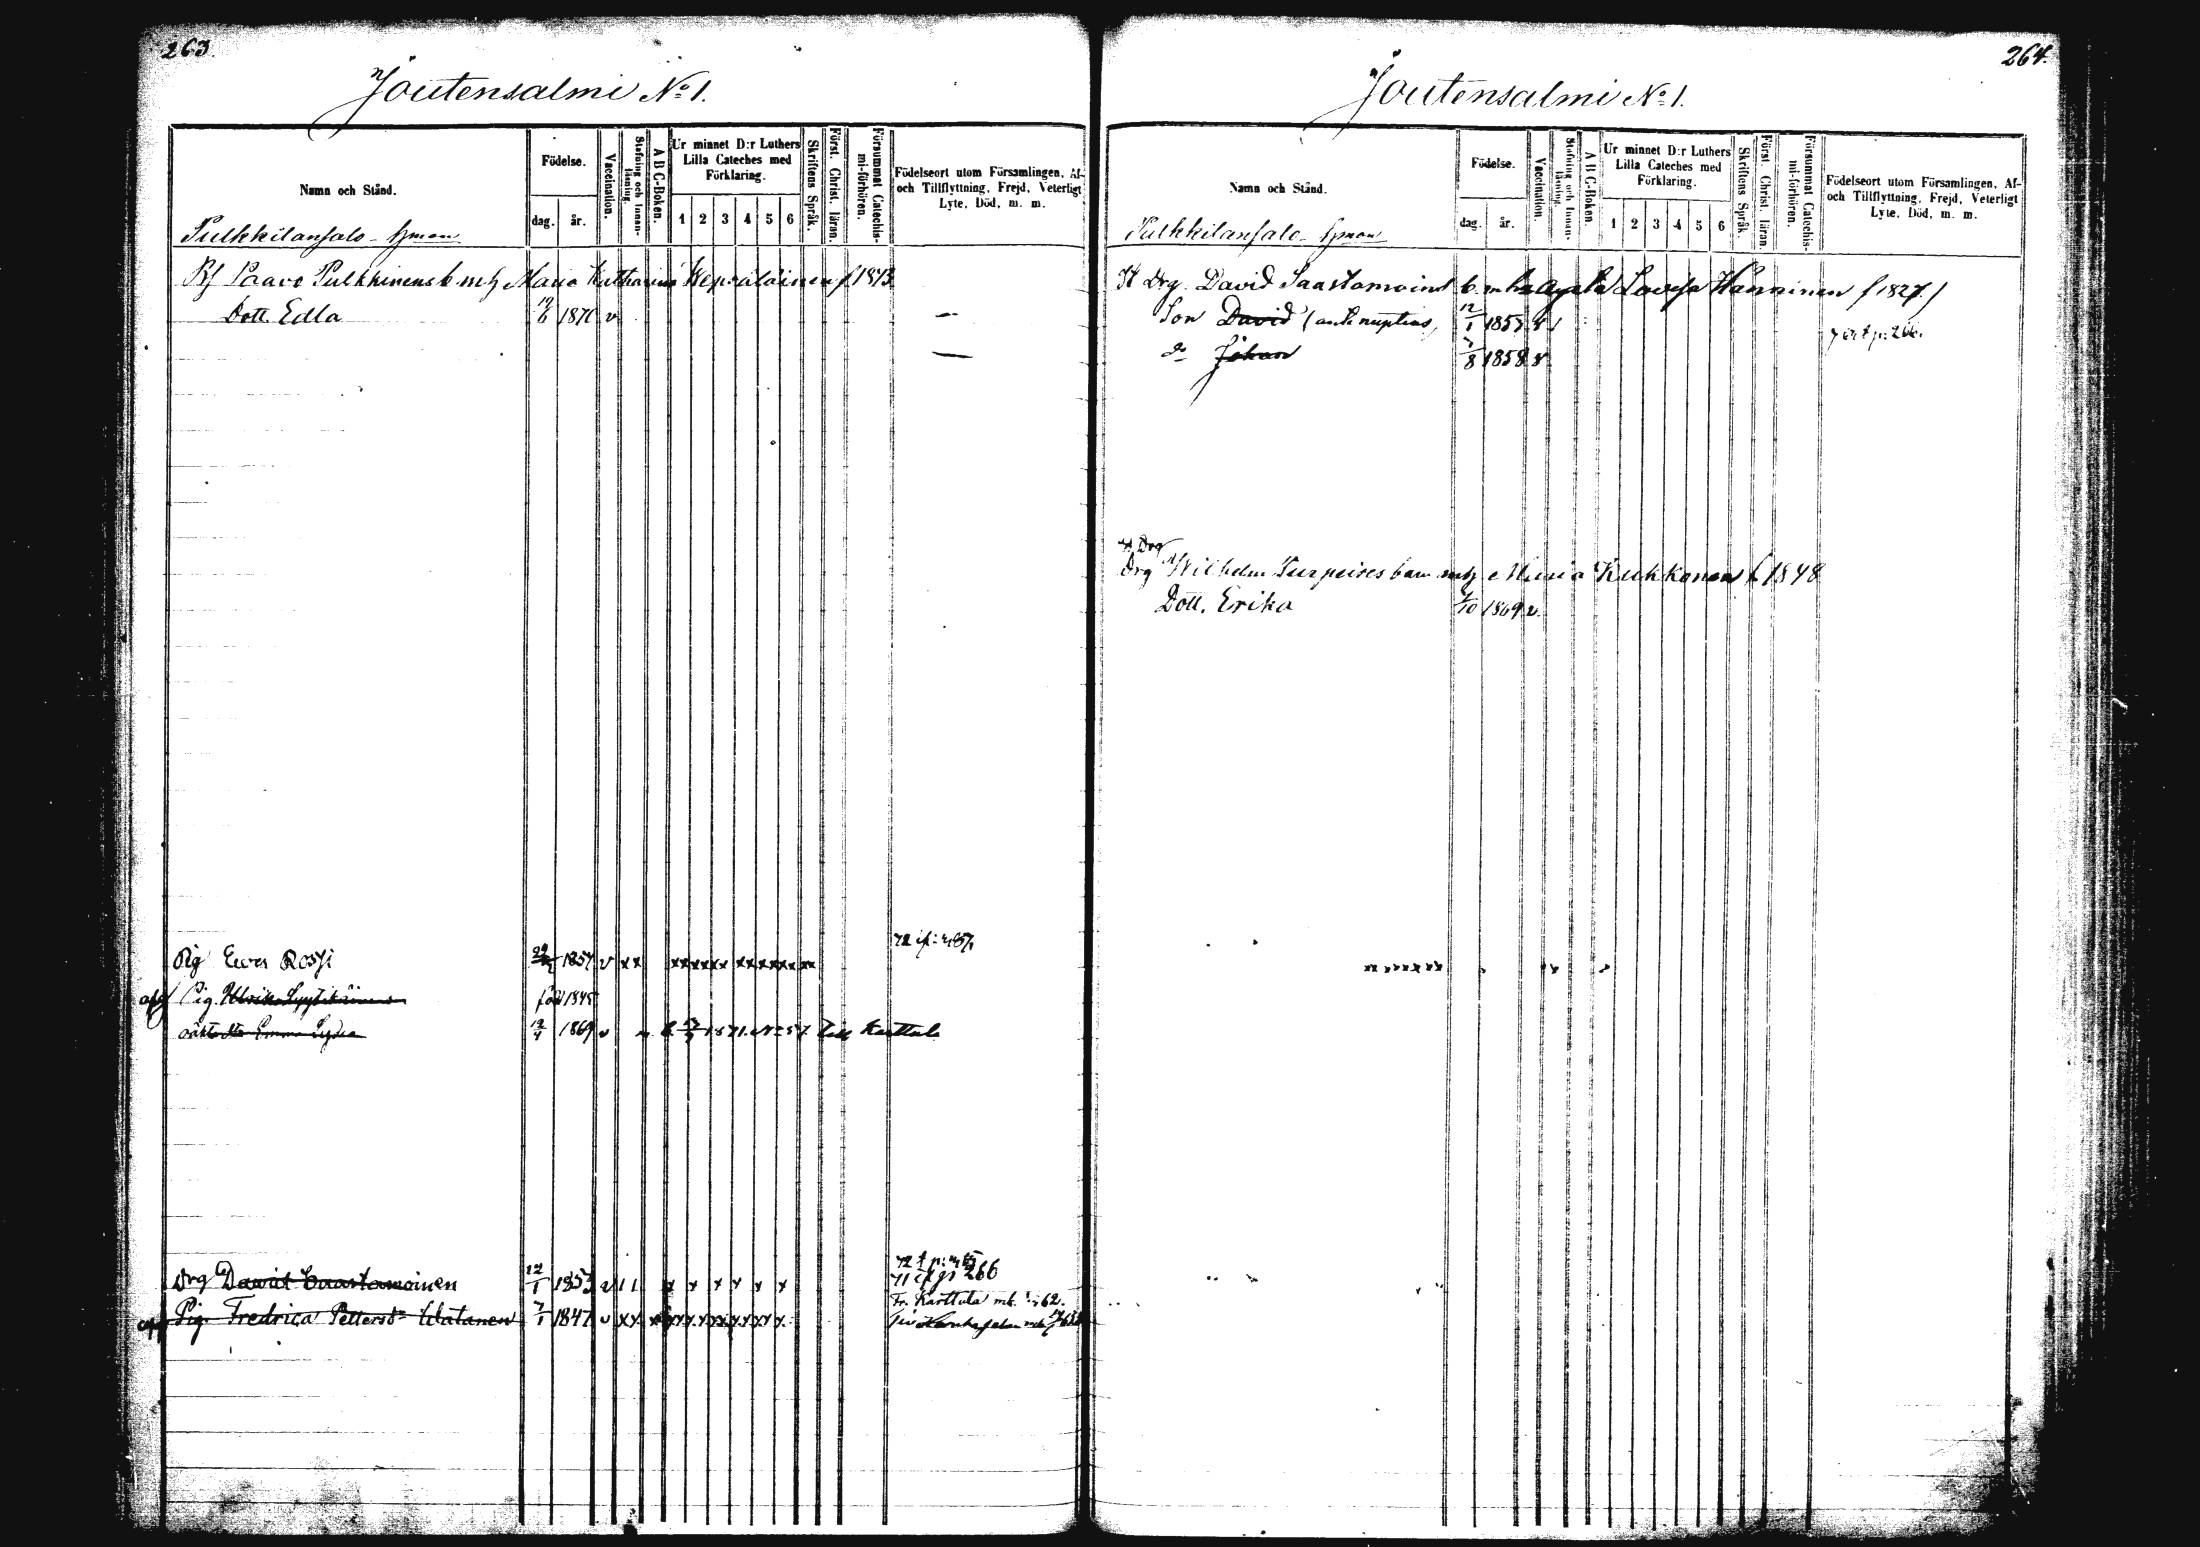 263.
Joutensalmi No 1.
Namn och Stånd.
Födelse.
dag.
år.
Vaccination.
Stafning och Innan-läsning.
A B C-Boken.
Ur minnet D:r Luthers Lilla Cateches med Förklaring.
1 2 3 4 5 6
Skriftens Språk.
Först. Christ. läran.
Försummat Catechis-mi-förhören.
Födelseort utom Församlingen, Af- och Tillflyttning, Frejd, Veterligt Lyte, Död, m. m.
Pulkkilansalo
Paavo Pulkkinens b. m. h. Maria Katharina f 1843
Dott. Edla 1870 v
Pig Eva Rossi 1857 v xx
Pig. Ulrika Lyytikäinen föd 1845
Emma Lydia 12/4 1869 v 1871 No 57 till Karttula
Drg David Saastamoinen 12/1 1853 v 11 x x x x x x
266
Pig. Fredrica Pettersd:r Watanen 7/1 1847 v xx
Fr. Karttula mb. 62.
264.
Joutensalmi No 1.
Namn och Stånd.
Födelse.
dag.
år.
Vaccination.
Stafning och Innan-läsning.
A B C-Boken.
Ur minnet D:r Luthers Lilla Cateches med Förklaring.
1 2 3 4 5 6
Skriftens Språk.
Först Christ. läran.
Försummat Catechis-mi-förhören.
Födelseort utom Församlingen, Af- och Tillflyttning, Frejd, Veterligt Lyte, Död, m. m.
Pulkkilansalo
Drg. David Saastamoinens b. m. Lovisa Hänninen f 1827
Son David (ante nuptias) 12/1 1857 v
do Johan 7/8 1858 v
p. 266.
Drg
Drg Wilhelm Turpeises barn m. h. Maria Kukkonen f 1848
Dott. Erika 1869 v.